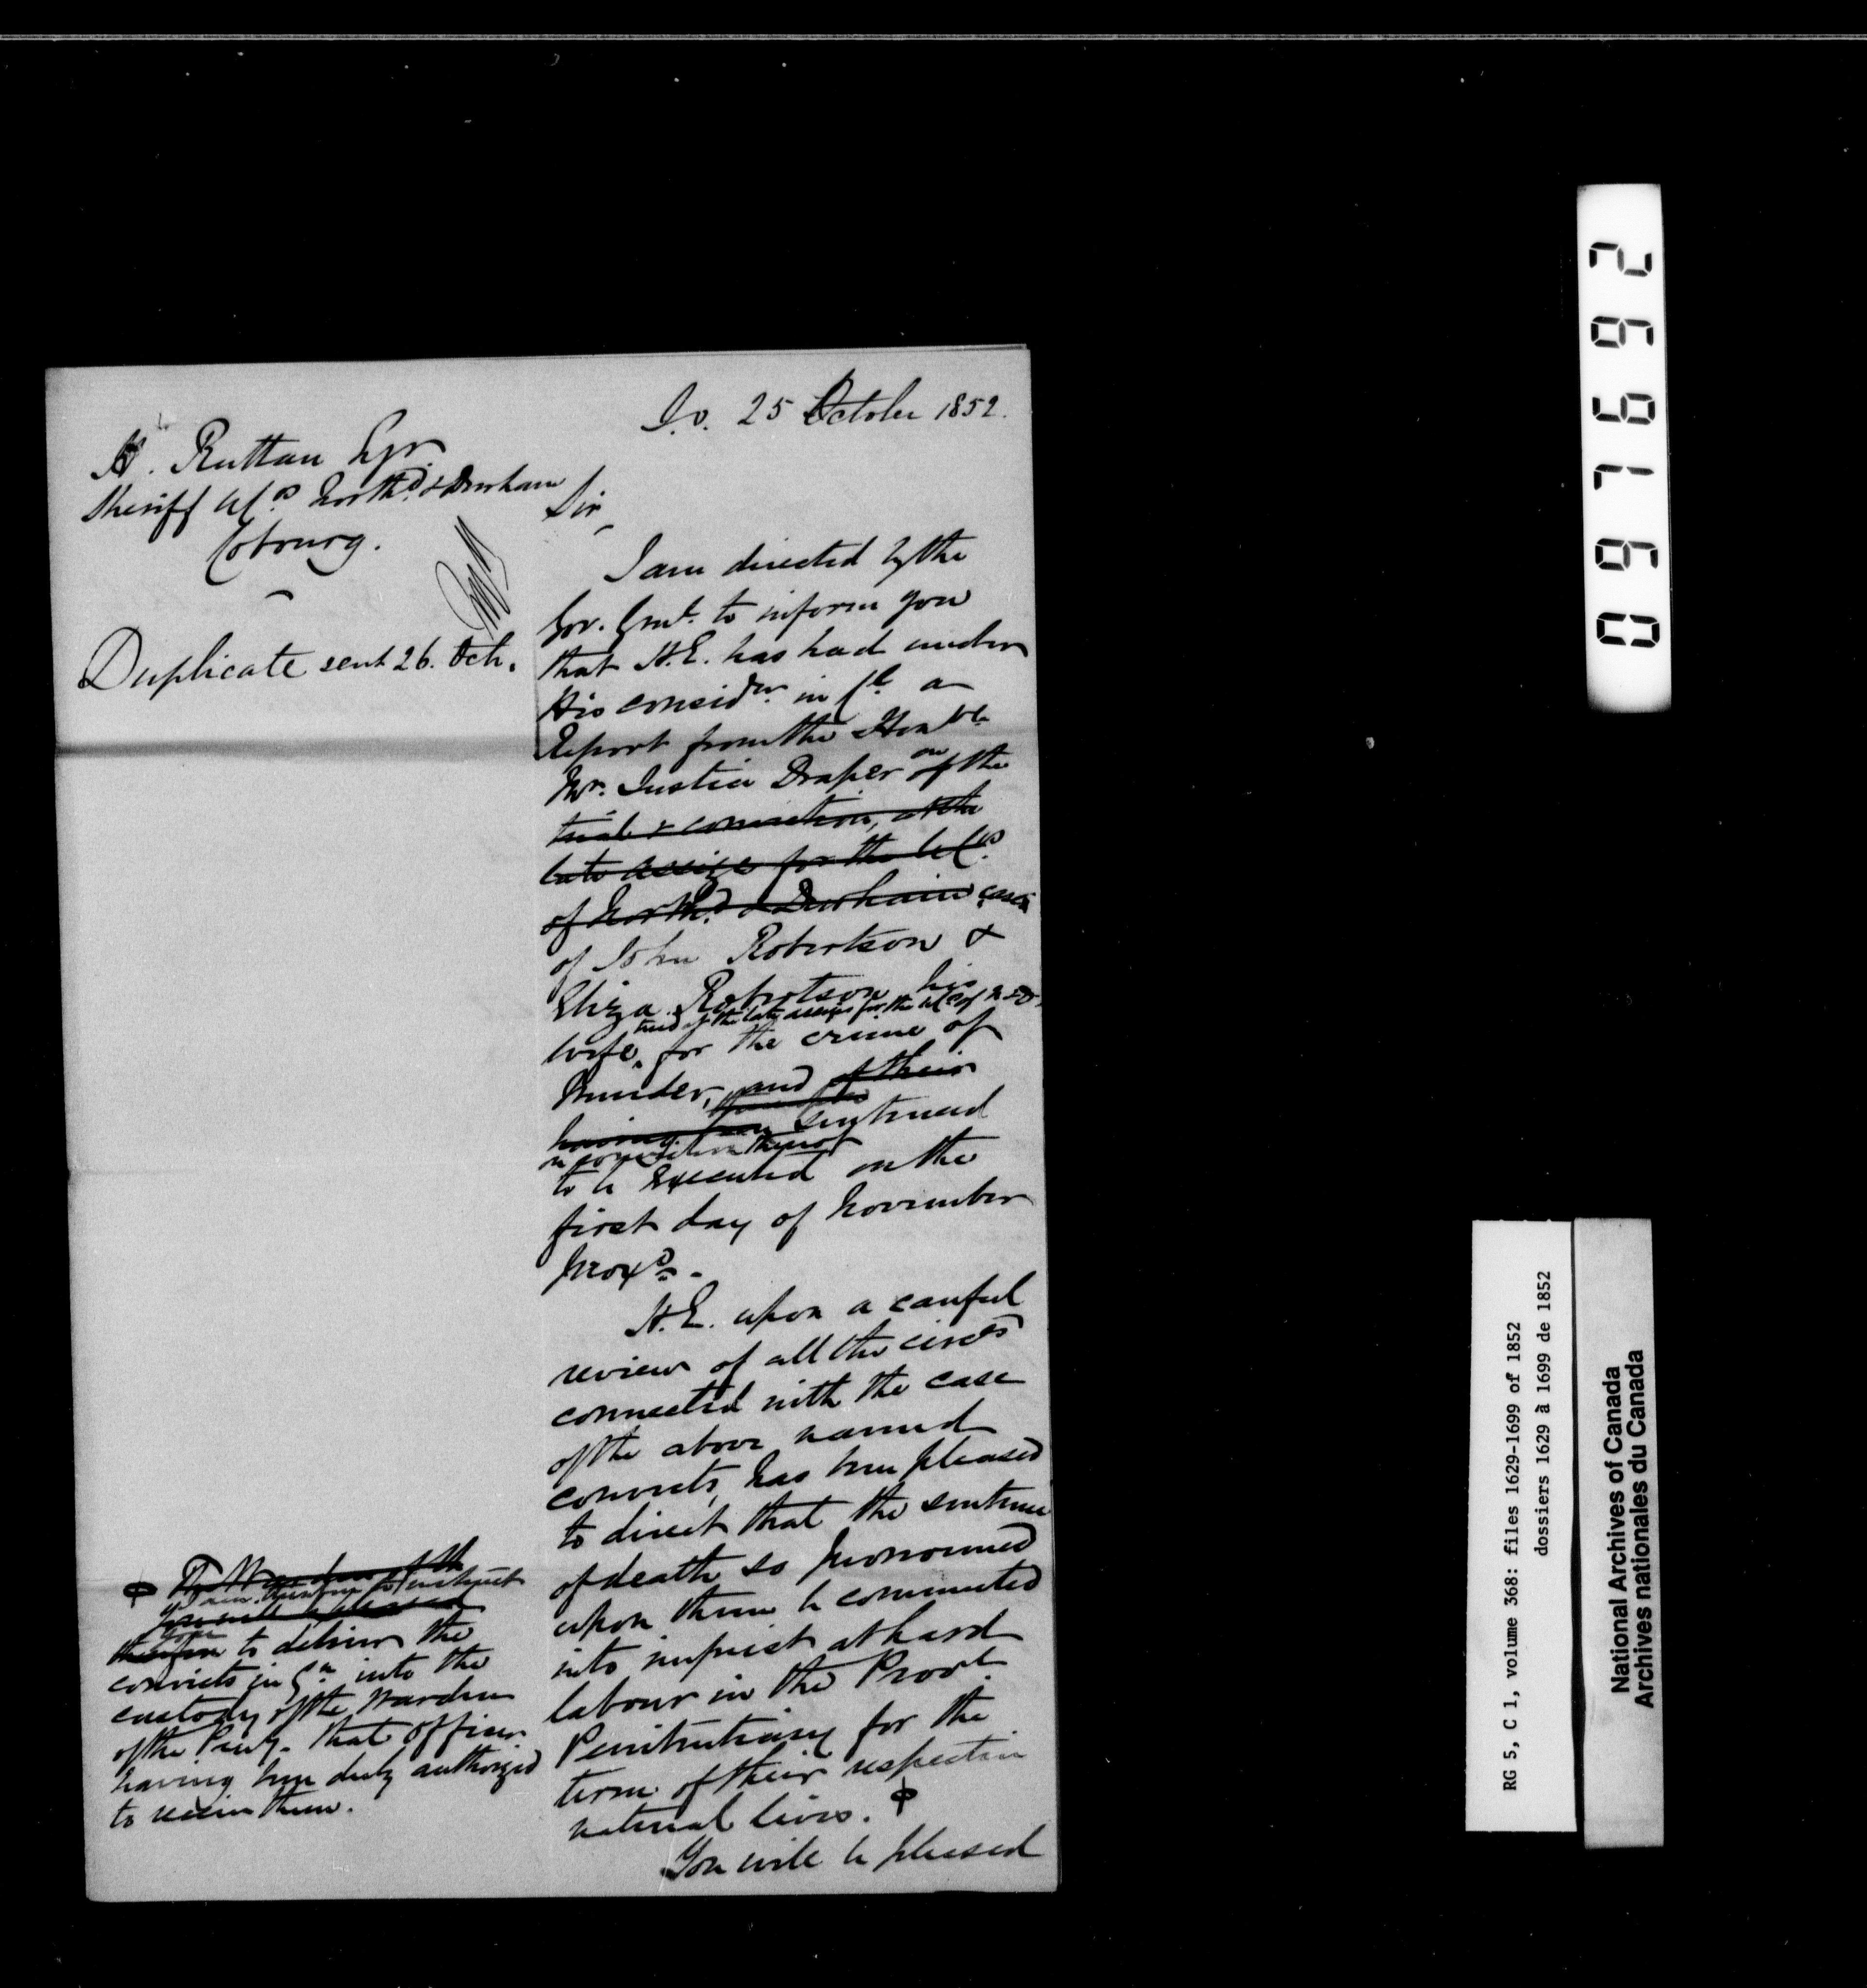 S.O. 25 October 1852.
H. Ruttan Esqr.
Sheriff U.Cs. North'd & Durham
Cobourg.
Duplicate sent 26. Octr.
Sir,
I am directed by the
Gov. Genl. to inform you
that H.E. has had under
His considn. in Cl. a
Report from the Honble
Mr. Justice Draper on of the
trial & conviction, at the
late assizes for the U.Cs.
of North'd & Durham cases
of John Robertson &
Eliza Robertson his
tried at the late assizes for the U.C. of N & D
wife, for the crime of
Murder, and of their
having been sentenced
on conviction thereof
to be executed on the
first day of November
proxo.
H.E. upon a careful
review of all the circes
connected with the case
of the above named
convicts, has been pleased
to direct that the sentence
of death so pronounced
upon them be commuted
into imprist at hard
labour in the Provl.
Penitentiary for the
term of their respective
natural lives. ϕ
You will be pleased
ϕ The Warden of the
you will be pleased
therefore to deliver the
convicts in qn. into the
custody of the Warden
of the Peny. that officer
having been duly authorized
to receive them.
0976992
RG 5, C 1, volume 368: files 1629-1699 of 1852
dossiers 1629 à 1699 de 1852
National Archives of Canada
Archives nationales du Canada